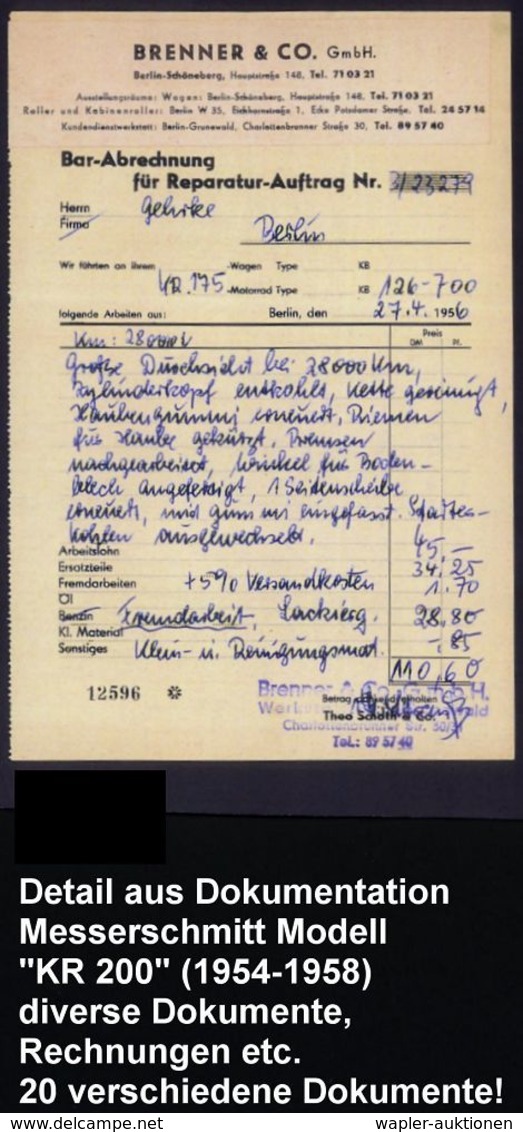 BRENNER & CO. GmbH.
Berlin-Schöneberg, Hauptstraße 148, Tel. 71 03 21
Ausstellungsräume: Wagen: Berlin-Schöneberg, Hauptstraße 148, Tel. 71 03 21
Roller und Kabinenroller: Berlin W 35, Eichhornstraße 1, Ecke Potsdamer Straße, Tel. 24 57 14
Kundendienstwerkstatt: Berlin-Grunewald, Charlottenbrunner Straße 30, Tel. 89 57 40
Bar-Abrechnung
für Reparatur-Auftrag Nr. 3/23279
Herrn Gehrke
Firma
Berlin
Wir führten an Ihrem -Wagen Type KB
KR. 175 -Motorrad Type KB 126-700
folgende Arbeiten aus: Berlin, den 27.4. 1956
Km: 28000 Preis
DM Pf.
Große Durchsicht bei 28000 Km,
Zylinderkopf entkohlt, Kette gereinigt,
Haubengummi erneuert, Riemen
für Haube gekürzt, Bremsen
nachgearbeitet, Winkel für Boden-
blech angefertigt, 1 Seitenscheibe
erneuert, mit gummi eingefasst. Starter-
Kohlen ausgewechselt.
Arbeitslohn 45,-
Ersatzteile 34,25
Fremdarbeiten +5% Versandkosten 1.70
Öl
Benzin Fremdarbeit, Lackierg. 28,80
Kl. Material -,85
Sonstiges Klein- u. Reinigungsmat.
110,60
12596 ✻
Brenner & Co. G.m.b.H.
Betrag erhalten
Theo Scholh & Co.
Charlottenbrunner Str. 30/31
Tel.: 89 57 40
Detail aus Dokumentation
Messerschmitt Modell
"KR 200" (1954-1958)
diverse Dokumente,
Rechnungen etc.
20 verschiedene Dokumente!
www.delcampe.net wapler-auktionen